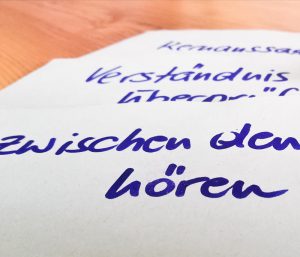 Kernaussa
Verständnis
überprü
zwischen den
hören